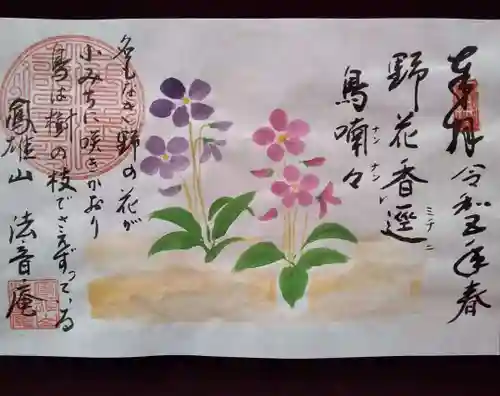 奉拝 令和五年春
野花香徑ニ
ミチ
鳥喃々
ナンナン
名もなき野の花が
小みちに咲きかおり
鳥は樹の枝でさえずっている
鳳雄山 法音庵